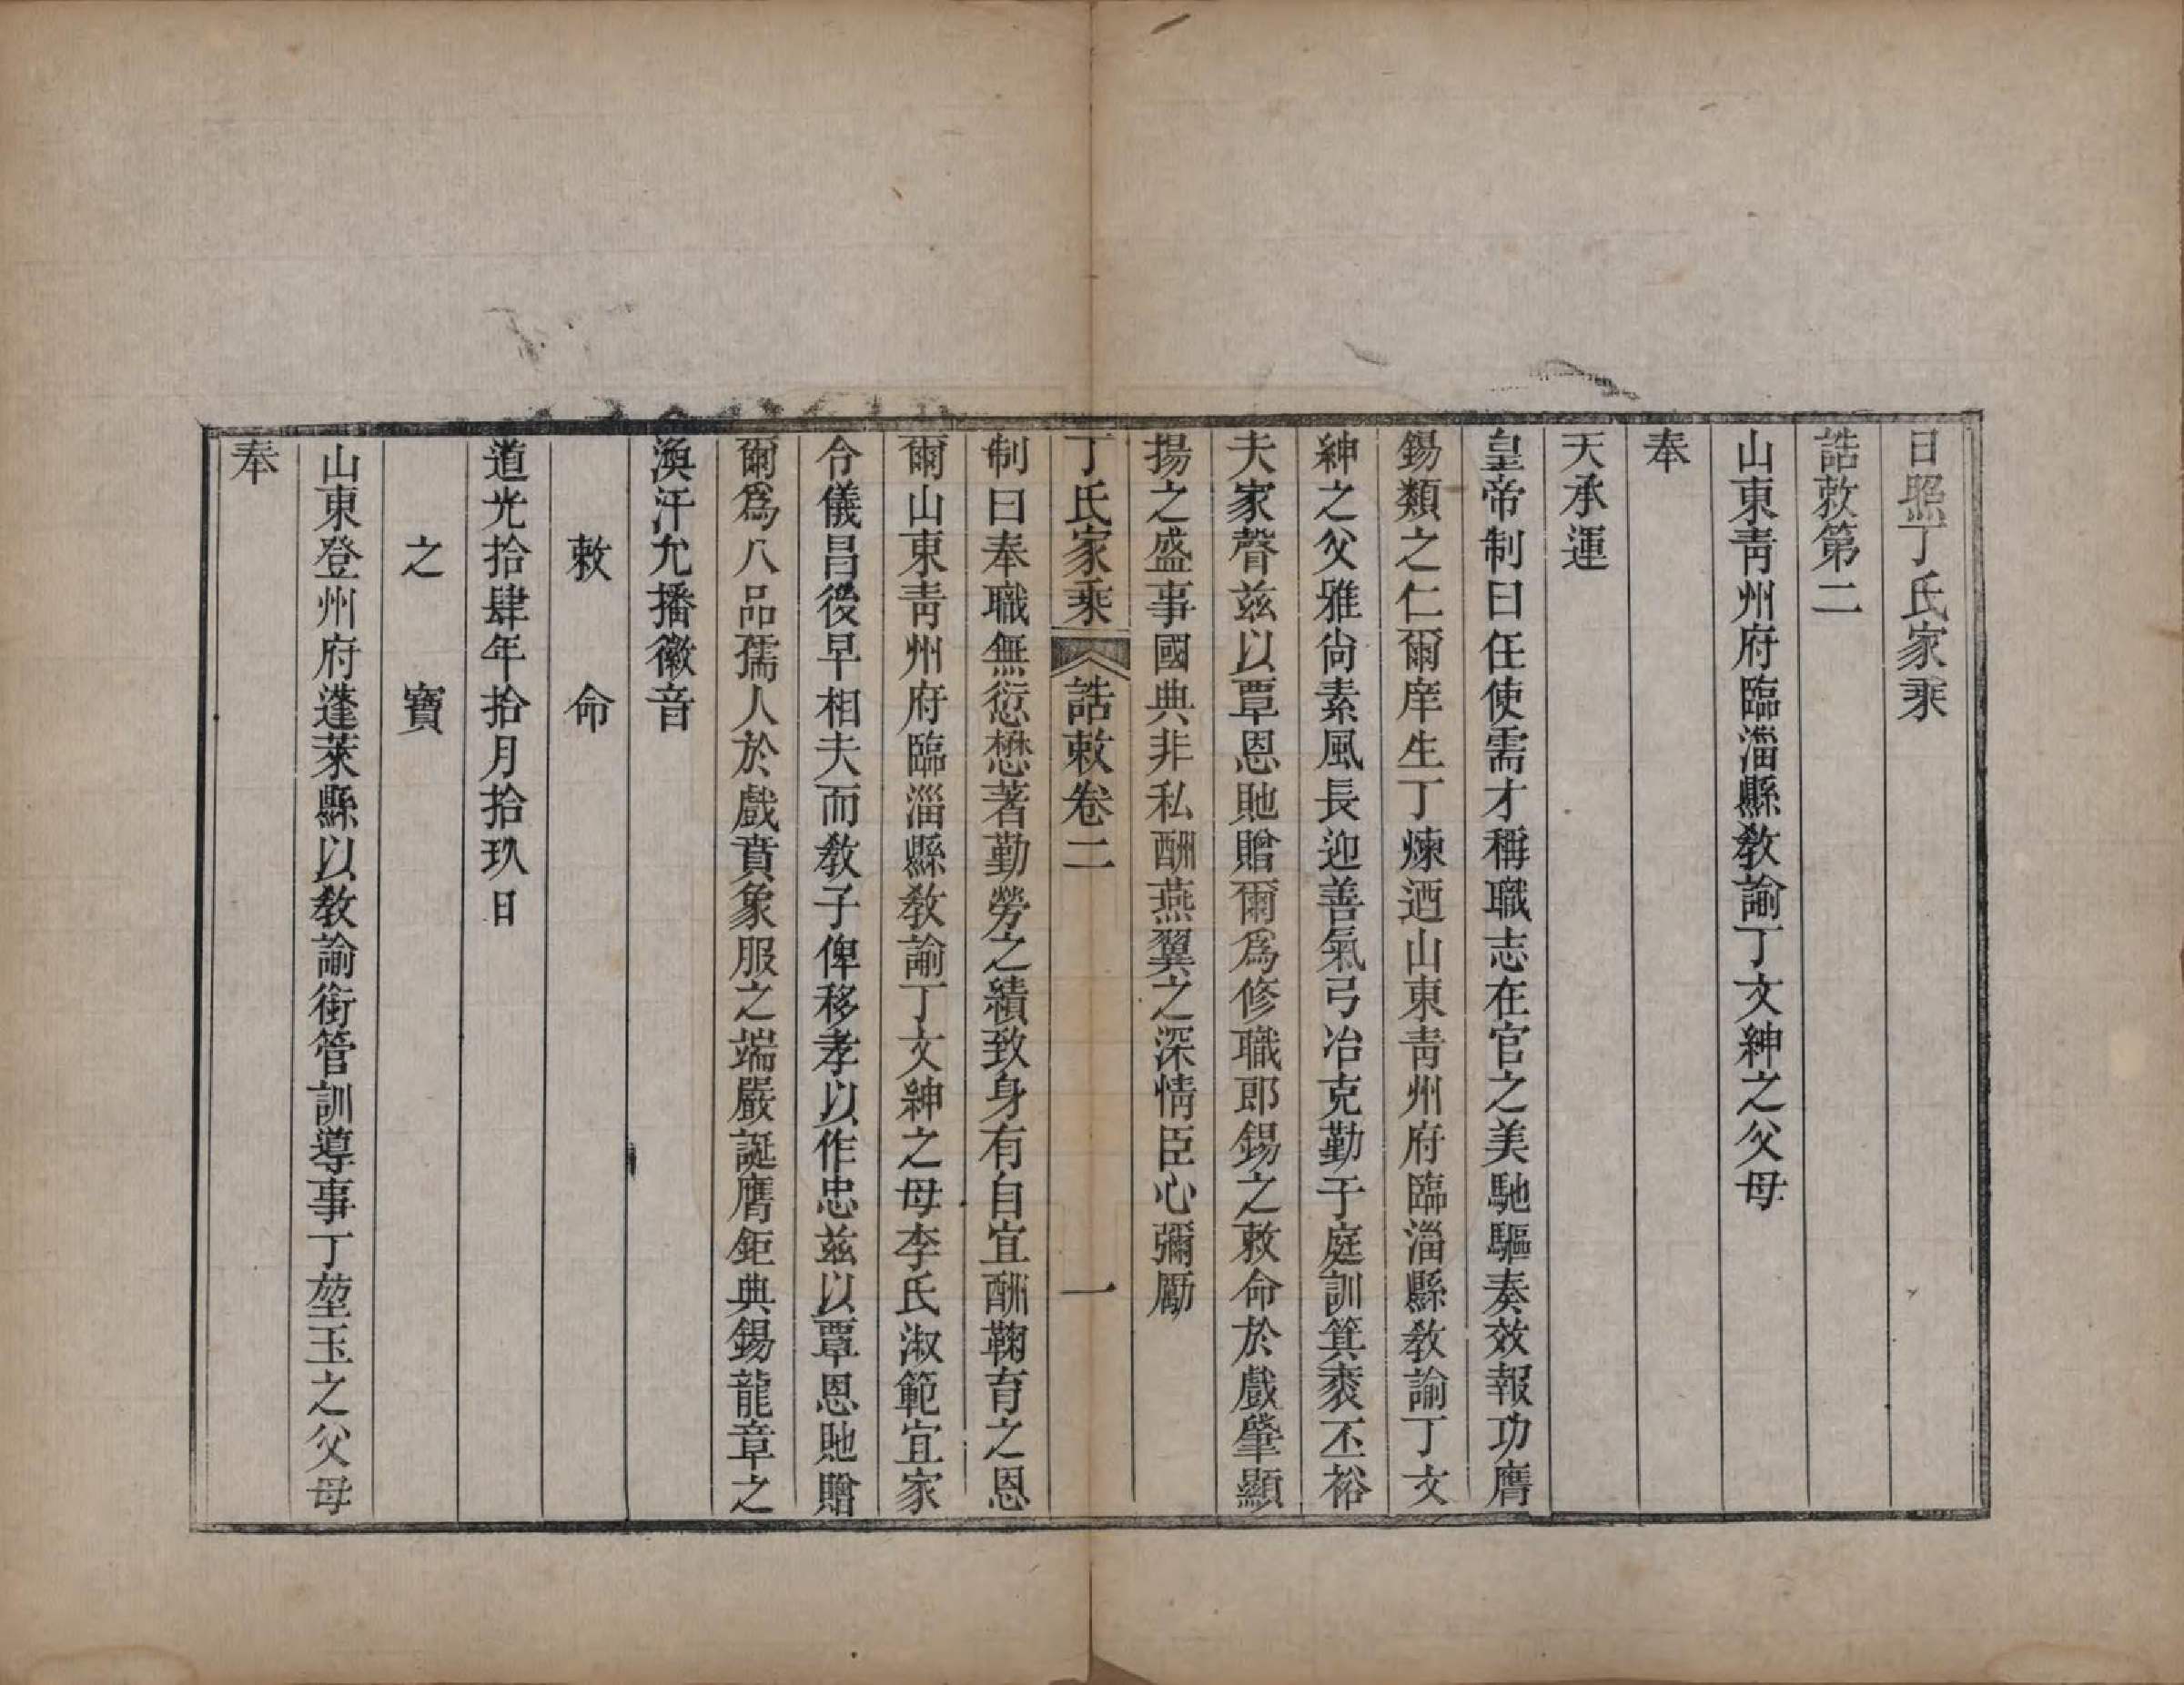 日照丁氏家乘
誥敕第二
山東靑州府臨淄縣敎諭丁文紳之父母
奉
天承運
皇帝制曰任使需才稱職志在官之美馳驅奏效報功膺
錫類之仁爾庠生丁煉迺山東靑州府臨淄縣敎諭丁文
紳之父雅尙素風長迎善氣弓冶克勤于庭訓箕裘丕裕
夫家聲兹以覃恩貤贈爾爲修職郎錫之敕命於戲肇顯
揚之盛事國典非私酬燕翼之深情臣心彌勵
丁氏家乘 誥敕卷二 一
制曰奉職無愆懋著勤勞之績致身有自宜酬鞠育之恩
爾山東靑州府臨淄縣敎諭丁文紳之母李氏淑範宜家
令儀昌後早相夫而敎子俾移孝以作忠兹以覃恩貤贈
爾爲八品孺人於戲賁象服之端嚴誕膺鉅典錫龍章之
渙汗允播徽音
敕命
道光拾肆年拾月拾玖日
之寶
山東登州府蓬萊縣以敎諭銜管訓導事丁堃玉之父母
奉